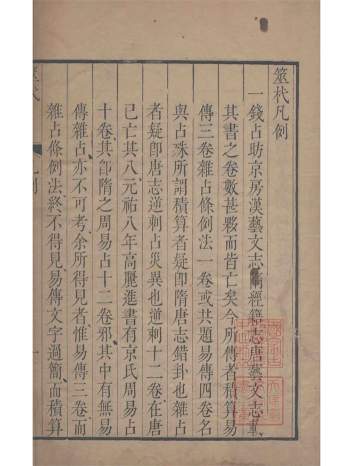 筮杙凡例
一錢占昉京房漢藝文志隋經籍志唐藝文志載
其書之卷數甚夥而皆亡矣今所傳者積算易
傳三卷雜占條例法一卷或共題易傳四卷名
與占殊所謂積算者疑卽隋唐志錯卦也雜占
者疑卽唐志逆刺占災異也逆刺十二卷在唐
已亡其八元祐八年高麗進書有京氏周易占
十卷其卽隋之周易占十二卷邪其中有無易
傳雜占亦不可考余所得見者惟易傳三卷而
雜占條例法終不得見易傳文字過簡而積算